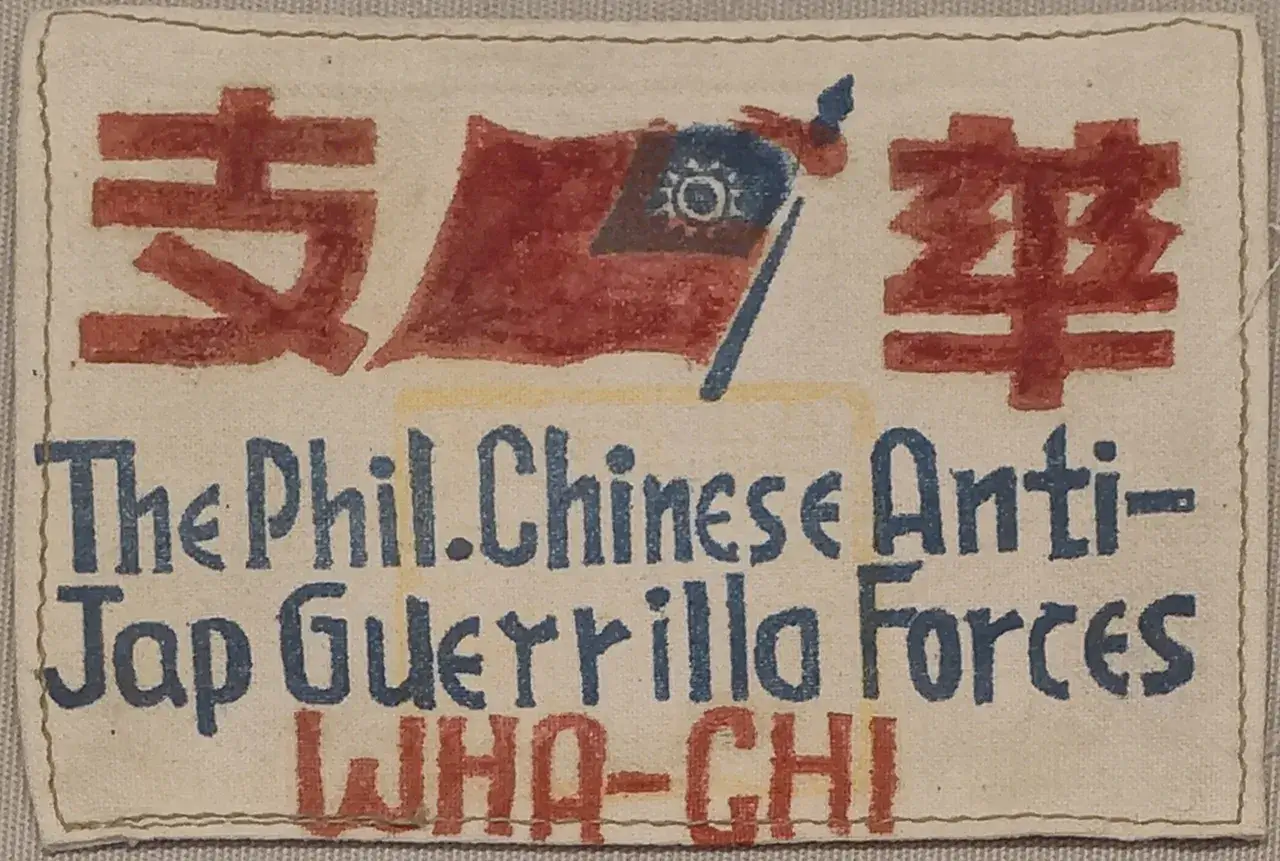 華支
The Phil. Chinese Anti-
Jap Guerrilla Forces
WHA-CHI